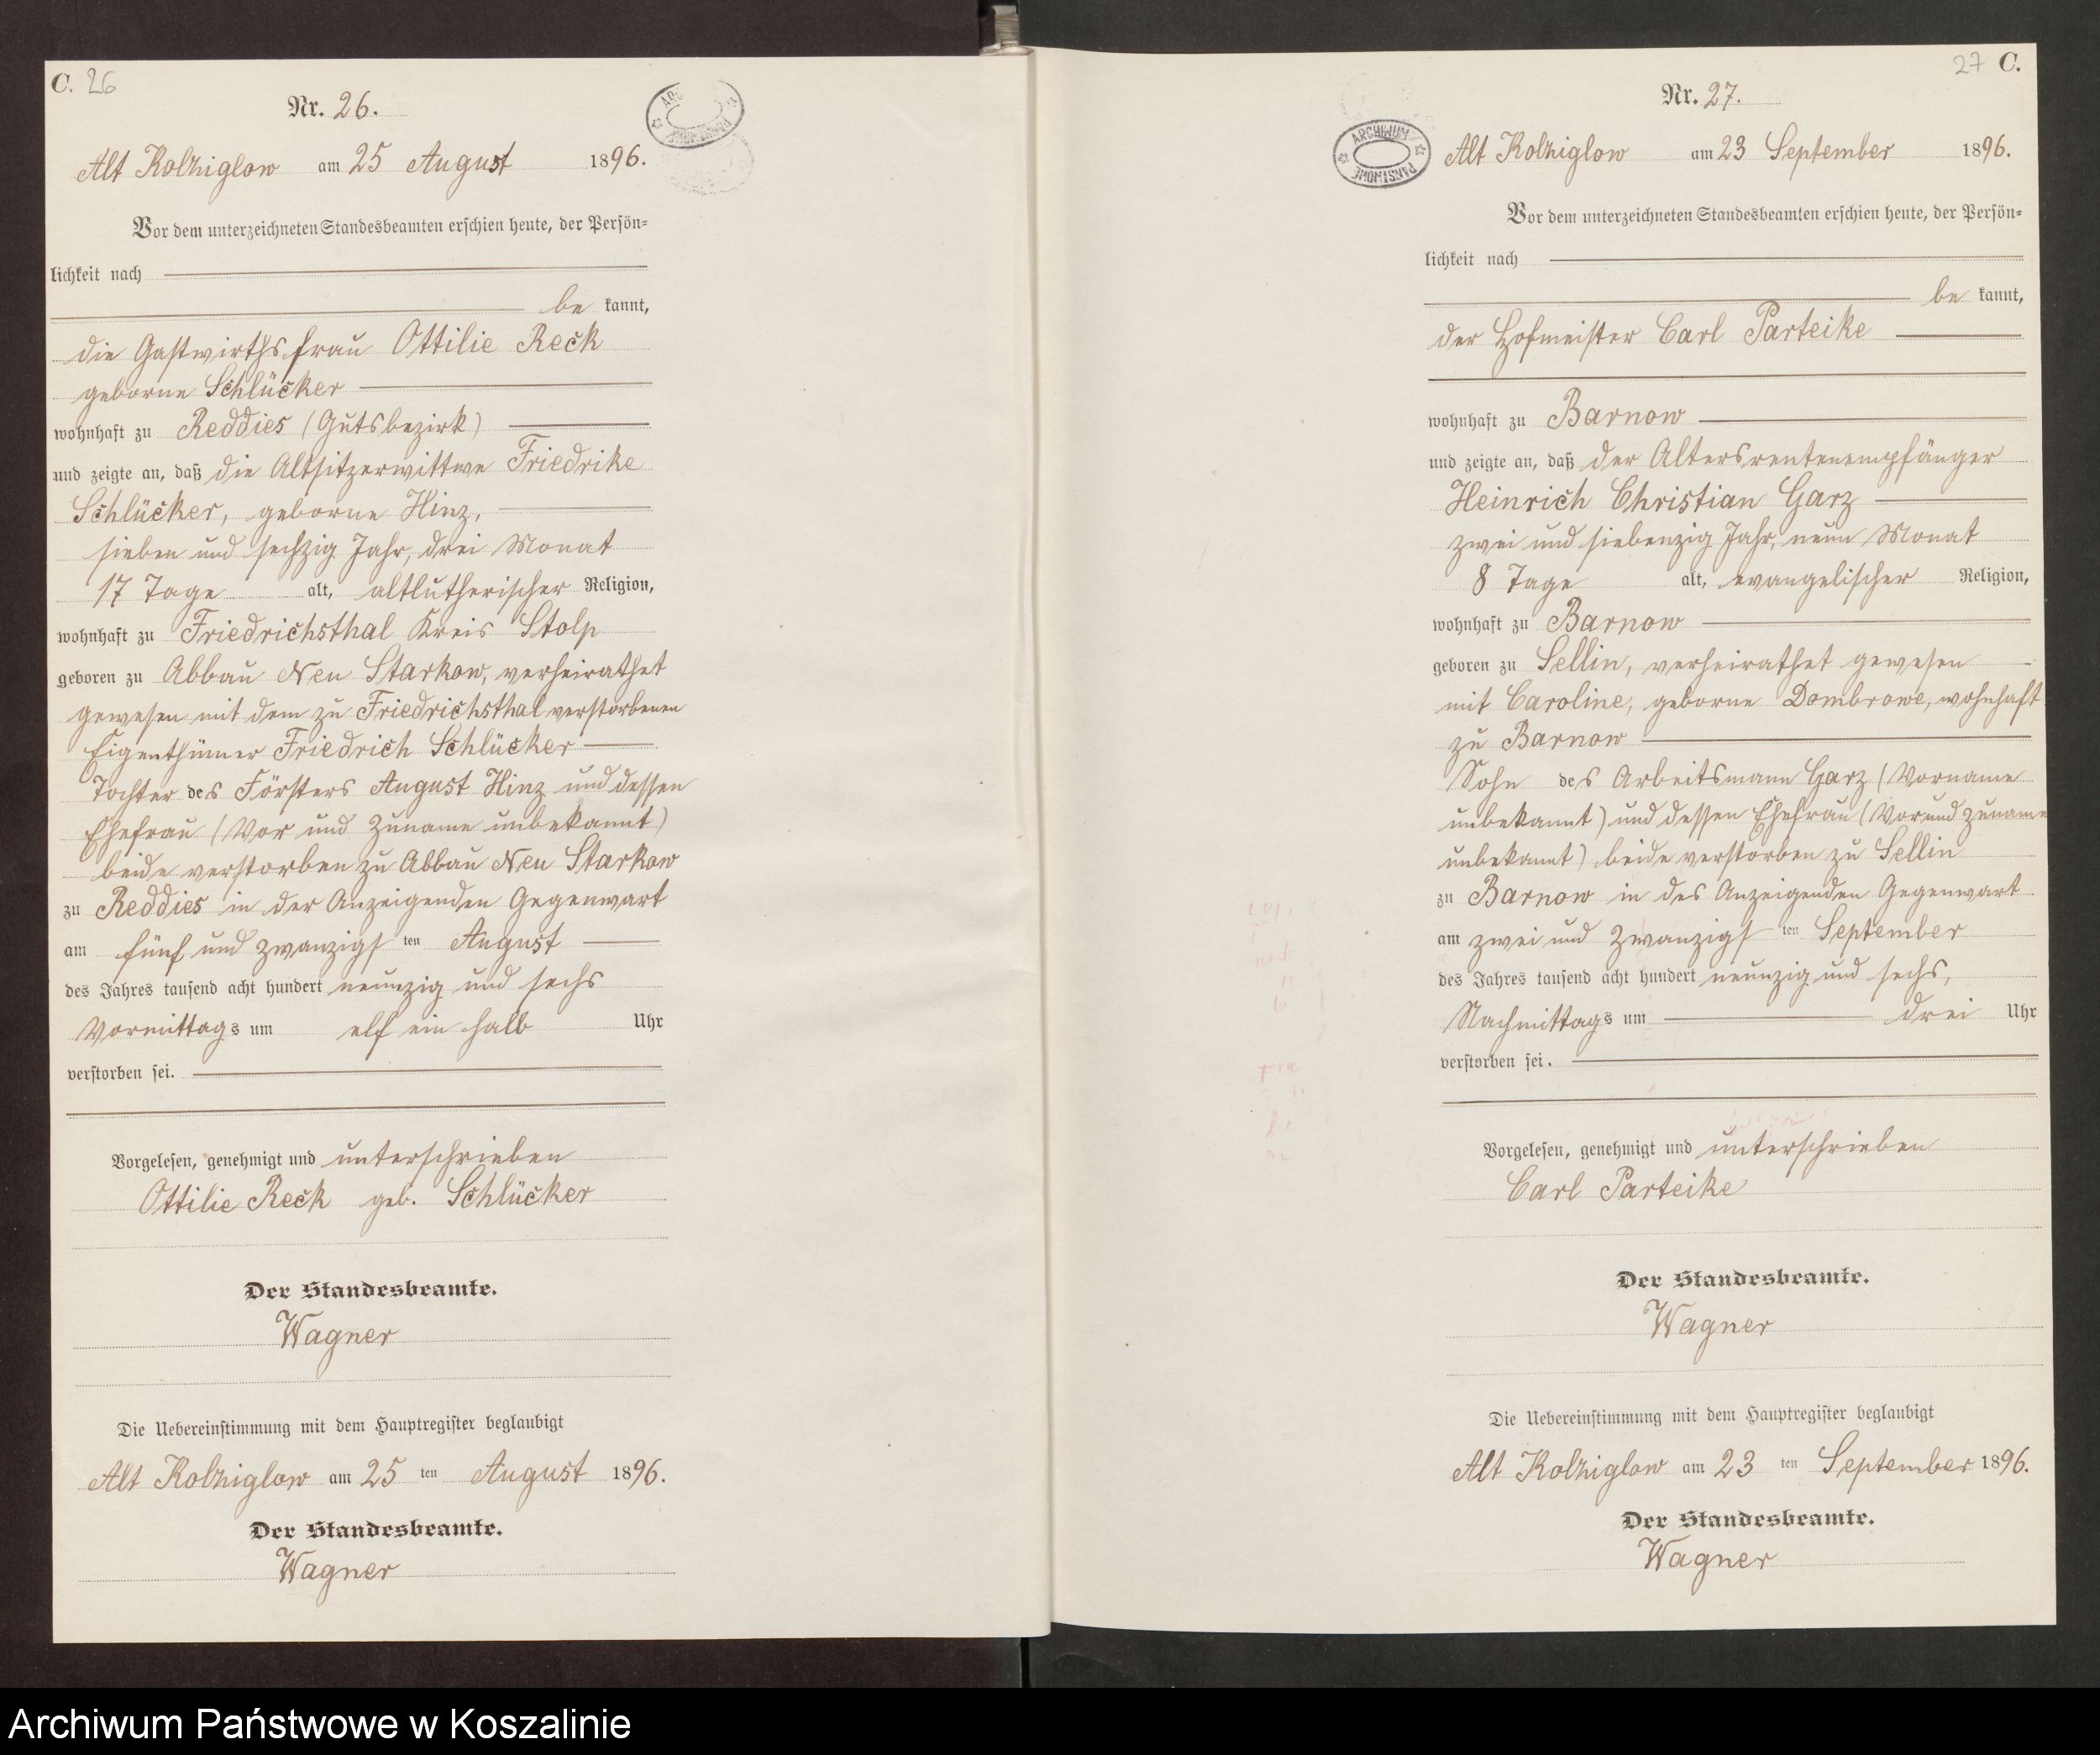 C. 26
Nr. 26.
Alt Kolziglow am 25 August 1896.
Vor dem unterzeichneten Standesbeamten erschien heute, der Persön-
lichkeit nach
be kannt,
die Gastwirthsfrau Ottilie Reck
geborne Schlücker
wohnhaft zu Reddies (Gutsbezirk)
und zeigte an, daß die Altsitzerwittwe Friedrike
Schlücker, geborne Hinz,
sieben und sechzig Jahr, drei Monat
17 Tage alt, altlutherischer Religion,
wohnhaft zu Friedrichsthal Kreis Stolp
geboren zu Abbau Neu Starkow, verheirathet
gewesen mit dem zu Friedrichsthal verstorbenen
Eigenthümer Friedrich Schlücker
Tochter des Försters August Hinz und dessen
Ehefrau (Vor und Zuname unbekannt)
beide verstorben zu Abbau Neu Starkow
zu Reddies in der Anzeigenden Gegenwart
am fünf und zwanzigsten August
des Jahres tausend acht hundert neunzig und sechs
Vormittags um elf ein halb Uhr
verstorben sei.
Vorgelesen, genehmigt und unterschrieben
Ottilie Reck geb. Schlücker
Der Standesbeamte.
Wagner
Die Uebereinstimmung mit dem Hauptregister beglaubigt
Alt Kolziglow am 25 ten August 1896.
Der Standesbeamte.
Wagner
ARCHIWUM PAŃSTWOWE
27 C.
Nr. 27.
Alt Kolziglow am 23 September 1896.
Vor dem unterzeichneten Standesbeamten erschien heute, der Persön-
lichkeit nach
be kannt,
der Hofmeister Carl Parteike
wohnhaft zu Barnow
und zeigte an, daß der Altersrentenempfänger
Heinrich Christian Garz
zwei und siebenzig Jahr, neun Monat
8 Tage alt, evangelischer Religion,
wohnhaft zu Barnow
geboren zu Sellin, verheirathet gewesen
mit Caroline, geborne Dombrowe, wohnhaft
zu Barnow
Sohn des Arbeitsmann Garz (Vorname
unbekannt) und dessen Ehefrau (Vor und Zuname
unbekannt) beide verstorben zu Sellin
zu Barnow in des Anzeigenden Gegenwart
am zwei und zwanzigsten September
des Jahres tausend acht hundert neunzig und sechs,
Nachmittags um drei Uhr
verstorben sei.
Vorgelesen, genehmigt und unterschrieben
Carl Parteike
Der Standesbeamte.
Wagner
Die Uebereinstimmung mit dem Hauptregister beglaubigt
Alt Kolziglow am 23 ten September 1896.
Der Standesbeamte.
Wagner
Archiwum Państwowe w Koszalinie